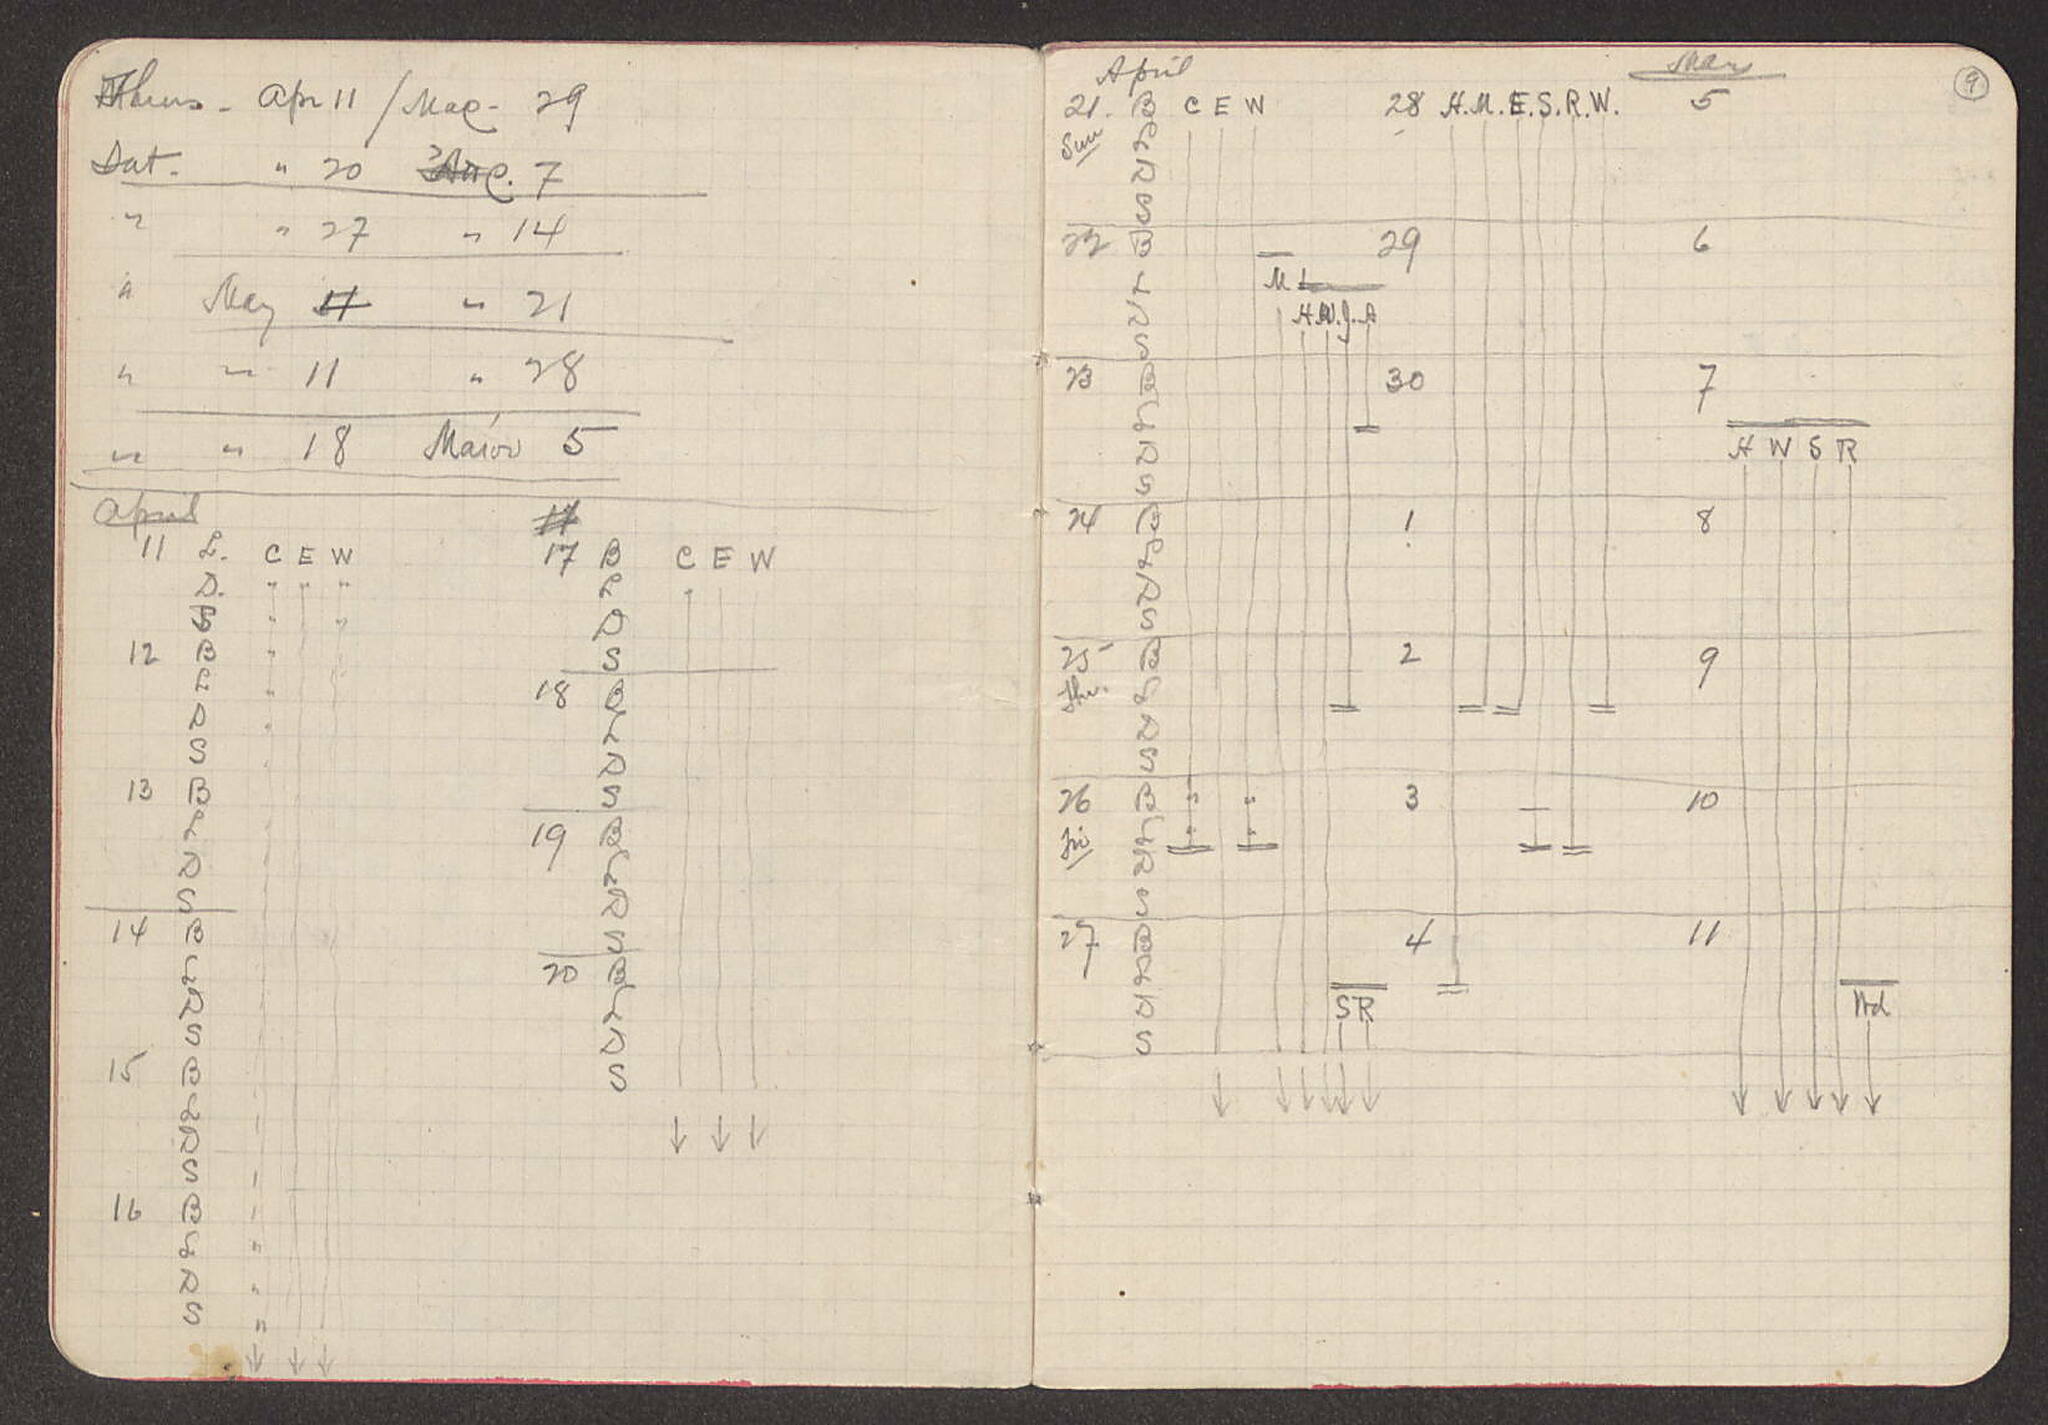 Thurs - Apr 11 / Μαρ - 29
Sat - " 20 Απρ. 7
" " 27 " 14
" May 11 " 21
" " 11 " 28
" " 18 Μαίου 5
April
11 L. C E W
D. " " "
S " "
12 B "
L "
D "
S
13 B
L
D
S
14 B
L
D
S
15 B
L
D
S
16 B
L "
D "
S "
17 B C E W
L "
D
S
18 B
L
D
S
19 B
L
D
S
20 B
L
D
S
9
April
21. B C E W
Sun L
D
S
22 B
L M
D H W. J. A
S
23 B
L
D
S
24 B
L
D
S
25 B
Thu. L
D
S
26 B " "
Fri L " "
D
S
27 B
L
D S R
S
28 H. M. E. S. R. W.
29
30
1
2
3
4
May
5
6
7
H W S R
8
9
10
11